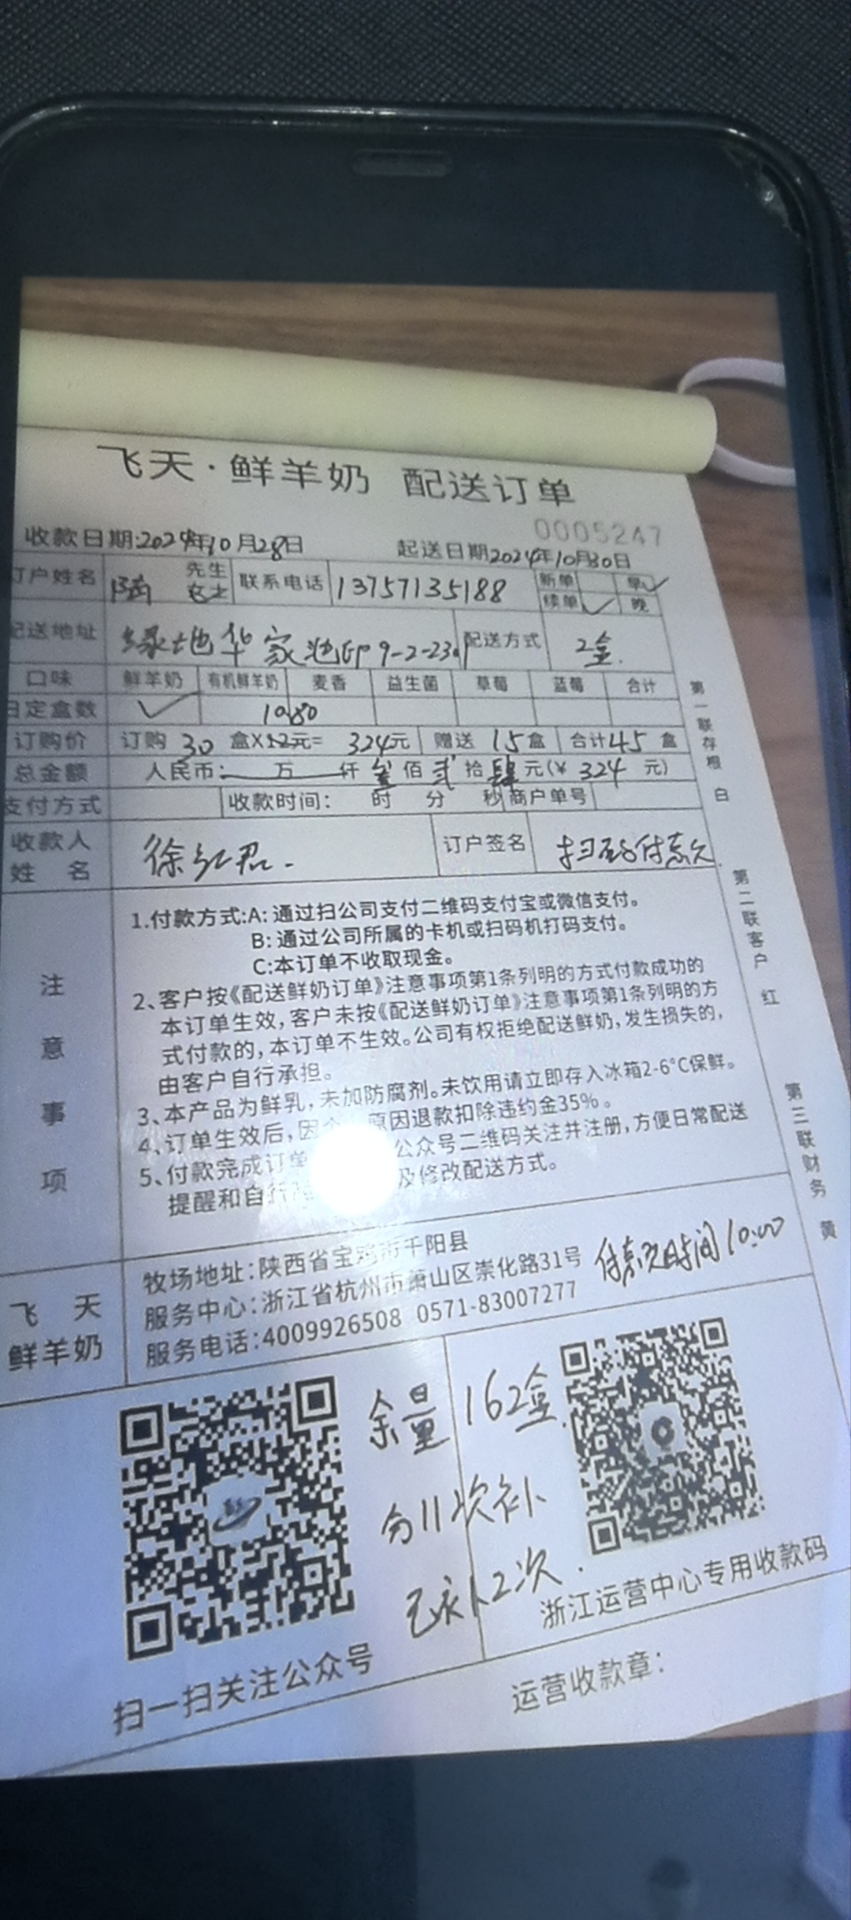 飞天·鲜羊奶 配送订单
0005247
收款日期:2024年10月28日 起送日期2024年10月30日
订户姓名 陆 先生 女士 联系电话 13757135188 新单 早✓
续单✓ 晚
配送地址 绿地华家池印9-2-2301 配送方式 2盒.
口味 鲜羊奶 有机鲜羊奶 麦香 益生菌 草莓 蓝莓 合计
日定盒数 ✓ 10.80
订购价 订购 30 盒X12元= 324元 赠送 15盒 合计45盒
总金额 人民币: 万 仟 叁佰贰拾肆元(¥ 324 元)
支付方式 收款时间: 时 分 秒 商户单号
收款人姓名 徐红君. 订户签名 扫码付款
注意事项
1.付款方式:A: 通过扫公司支付二维码支付宝或微信支付。
B: 通过公司所属的卡机或扫码机打码支付。
C:本订单不收取现金。
2、客户按《配送鲜奶订单》注意事项第1条列明的方式付款成功的
本订单生效,客户未按《配送鲜奶订单》注意事项第1条列明的方
式付款的,本订单不生效。公司有权拒绝配送鲜奶,发生损失的,
由客户自行承担。
3、本产品为鲜乳,未加防腐剂。未饮用请立即存入冰箱2-6°C保鲜。
4、订单生效后,因 原因退款扣除违约金35%。
5、付款完成订单 公众号二维码关注并注册,方便日常配送
提醒和自行 及修改配送方式。
第一联存根 白
第二联客户 红
第三联财务 黄
飞天鲜羊奶
牧场地址:陕西省宝鸡市千阳县
服务中心:浙江省杭州市萧山区崇化路31号
服务电话:4009926508 0571-83007277
付款时间10:00
余量162盒.
分11次补
已补2次.
扫一扫关注公众号
浙江运营中心专用收款码
运营收款章: